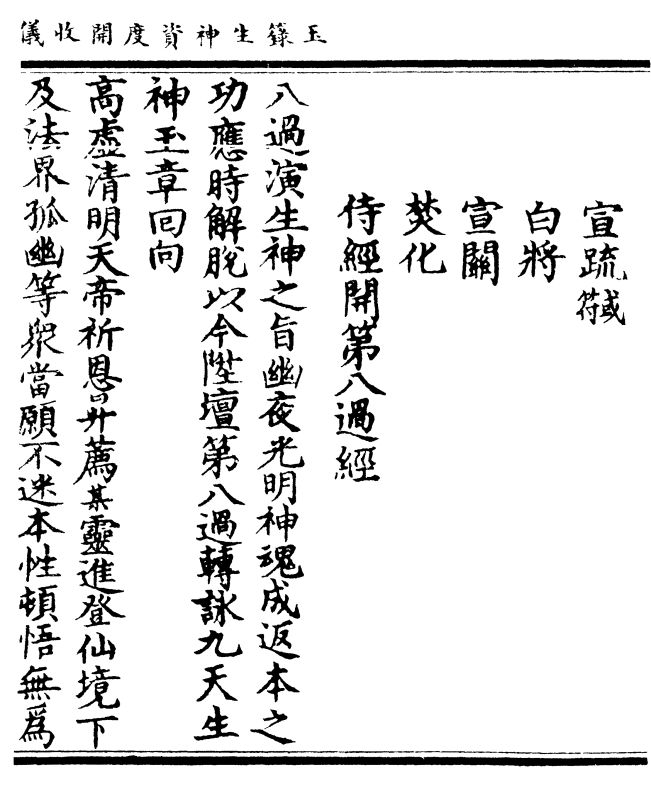 玉籙生神資度開收儀
宣疏 或符
白將
宣關
焚化
侍經開第八過經
八過演生神之旨幽夜光明神魂成返本之
功應時解脫以今陞壇第八過轉詠九天生
神玉章回向
高虛清明天帝祈恩昇薦某靈進登仙境下
及法界孤幽等眾當願不迷本性頓悟無爲